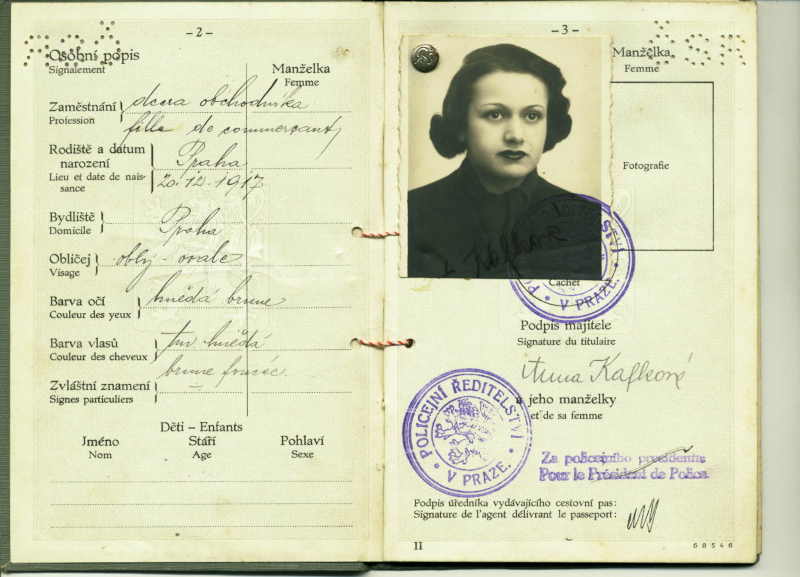 -2-
Osobní popis
Signalement
Manželka
Femme
Zaměstnání
Profession
dcera obchodníka
fille de commerçant
Rodiště a datum
narození
Lieu et date de nais-
sance
Praha
20.12.1917
Bydliště
Domicile
Praha
Obličej
Visage
oblý - ovale
Barva očí
Couleur des yeux
hnědá brune
Barva vlasů
Couleur des cheveux
tm hnědá
brune foncée
Zvláštní znamení
Signes particuliers
—
Děti – Enfants
Jméno
Nom
Stáří
Age
Pohlaví
Sexe
-3-
Manželka
Femme
Fotografie
Kafková
V PRAZE.
Cachet
Podpis majitele
Signature du titulaire
Anna Kafková
a jeho manželky
et de sa femme
POLICEJNÍ ŘEDITELSTVÍ
V PRAZE.
Za policejního presidenta:
Pour le Président de Police
Podpis úředníka vydávajícího cestovní pas:
Signature de l'agent délivrant le passeport:
II
68546